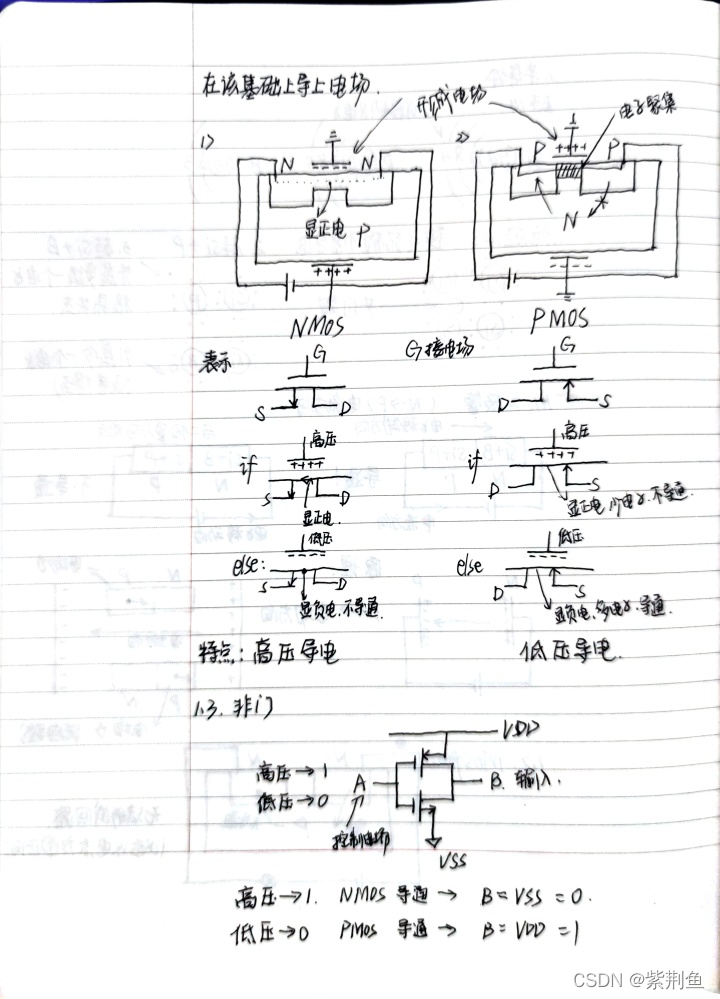 在该基础上导上电场.
形成电场
电子聚集
1)
N
N
显正电
P
2)
P
P
N
NMOS
PMOS
表示
G
S
D
G接电场
G
D
S
if
高压
S
D
显正电.
if
高压
D
S
显正电,少电子.不导通.
else:
低压
S
D
显负电,不导通.
else
低压
D
S
显负电,多电子,导通.
特点:高压导电
低压导电.
1.3. 非门
VDD
高压→1
低压→0
A
B. 输入.
控制电场
VSS
高压→1. NMOS 导通 → B=VSS=0.
低压→0 PMOS 导通 → B=VDD=1
CSDN @紫荆鱼